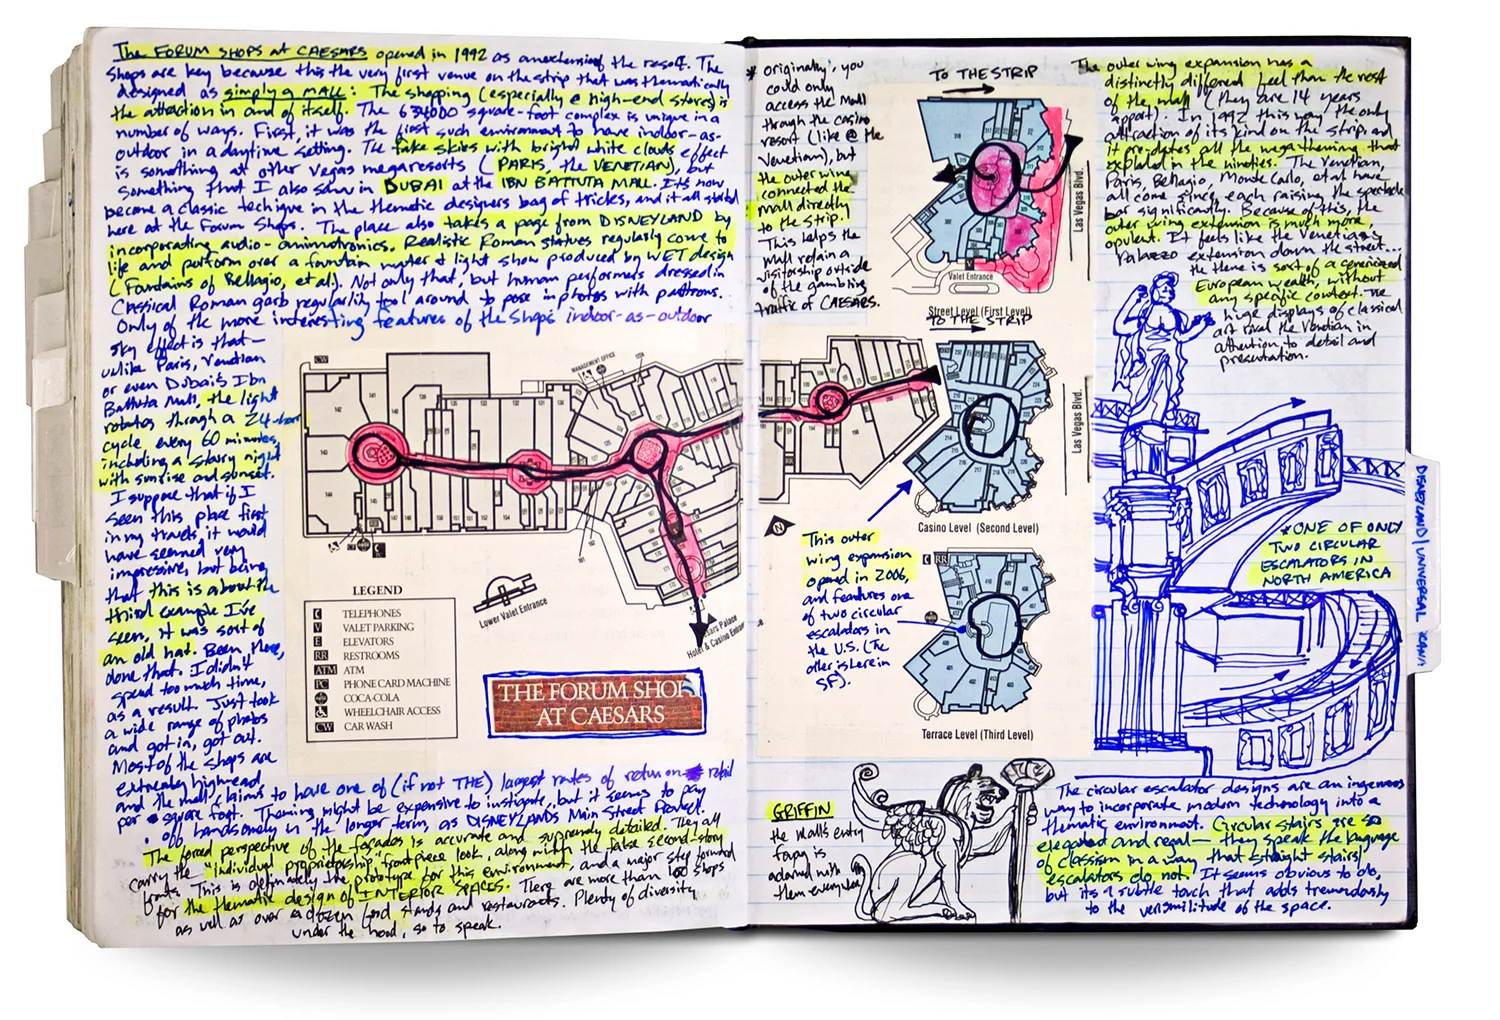 The FORUM SHOPS at CAESARS opened in 1992 as an extension of the resort. The
shops are key because this the very first venue on the strip that was thematically
designed as simply a mall: The shopping (especially @ high-end stores) is
the attraction in and of itself. The 634000 square-foot complex is unique in a
number of ways. First, it was the first such environment to have indoor-as-
outdoor in a daytime setting. The fake skies with bright white clouds effect
is something at other Vegas megaresorts (PARIS, the VENETIAN), but
something that I also saw in DUBAI at the IBN BATTUTA MALL. It's now
become a classic techique in the thematic designers bag of tricks, and it all started
here at the Forum Shops. The place also takes a page from DISNEYLAND by
incorporating audio-animatronics. Realistic Roman statues regularly come to
life and perform over a fountain water & light show produced by WET design
(Fountains of Bellagio, et al.). Not only that, but human performers dressed in
Classical Roman garb regularlily tool around to pose in photos with patrons.
Only of the more interesting features of the Shops indoor-as-outdoor
sky effect is that—
unlike Paris, Venetian
or even Dubai's Ibn
Battuta Mall, the light
rotates through a 24-hour
cycle every 60 minutes,
including a starry night
with sunrise and sunset.
I suppose that if I
seen this place first
in my travels, it would
have seemed very
impressive, but being
that this is about the
third example I've
seen, it was sort of
an old hat. Been there,
done that. I didn't
spend too much time,
as a result. Just took
a wide range of photos
and got in, got out.
Most of the shops are
extremely high end,
and the mall claims to have one of (if not THE) largest rates of return retail
per square foot. Theming might be expensive to instigate, but it seems to pay
off handsomely in the longer term, as DISNEYLANDs Main Street Proved.
The forced perspective of the facades is accurate and supremely detailed. They all
carry the "individual proprietorship" frontpiece look, along with the false second-story
fronts. This is definately the prototype for this environment, and a major step forward
for the thematic design of INTERIOR SPACES. There are more than 100 shops
as well as over a dozen food stands and restaurants. Plenty of diversity
under the hood, so to speak.
CW
MANAGEMENT OFFICE
142
141
143
144
145
Lower Valet Entrance
Hotel & Casino
LEGEND
TELEPHONES
V VALET PARKING
E ELEVATORS
RR RESTROOMS
ATM ATM
PC PHONE CARD MACHINE
COCA-COLA
WHEELCHAIR ACCESS
CW CAR WASH
THE FORUM SHOPS
AT CAESARS
* originally, you
could only
access the Mall
through the casino
resort (like @ the
Venetian), but
the outer wing
connected the
mall directly
to the strip!
This helps the
mall retain a
visitorship outside
of the gambling
traffic of CAESARS.
TO THE STRIP
Las Vegas Blvd.
Valet Entrance
Street Level (First Level)
TO THE STRIP
Las Vegas Blvd.
Casino Level (Second Level)
N
RR
Terrace Level (Third Level)
This outer
wing expansion
opened in 2006,
and features one
of two circular
escalators in
the U.S. (The
other is here in
SF).
The outer wing expansion has a
distinctly different feel than the rest
of the mall (they are 14 years
apart). In 1992 this was the only
attraction of its kind on the strip, and
it pre-dates all the megatheming that
exploded in the nineties. The Venetian,
Paris, Bellagio, Monte Carlo, et al have
all come since, each raising the spectacle
bar significantly. Because of this, the
outer wing extension is much more
opulent. It feels like the Venetian's
Palazzo extension down the street...
the theme is sort of a genericized
European wealth, without
any specific context. The
huge displays of classical
art rival the Venetian in
attention to detail and
presentation.
*ONE OF ONLY
TWO CIRCULAR
ESCALATORS IN
NORTH AMERICA
DISNEYLAND | UNIVERSAL
GRIFFIN
the mall's entry
is
adorned with
them everywhere
The circular escalator designs are an ingenious
way to incorporate modern technology into a
thematic environment. Circular stairs are so
elegant and regal— they speak the language
of classism in a way that straight stairs/
escalators do not. It seems obvious to do,
but its a subtle touch that adds tremendously
to the verisimilitude of the space.